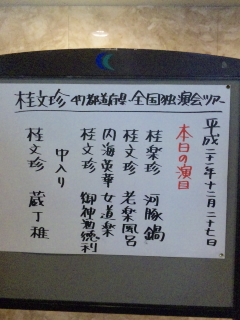 桂文珍 47都道府県・全国独演会ツアー
平成二十二年十二月二十七日
本日の演目
桂楽珍 河豚鍋
桂文珍 老楽風呂
内海英華 女道楽
桂文珍 御神酒徳利
中入り
桂文珍 蔵丁稚